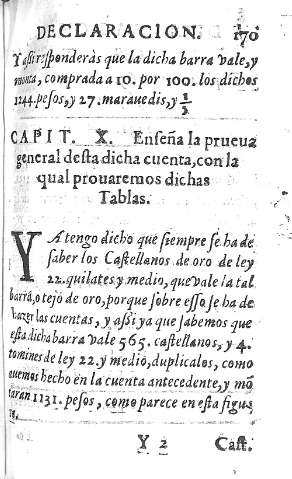 DECLARACION. 170
Y assi responderàs que la dicha barra vale, y
monta, comprada a 10. por 100. los dichos
1244. pesos, y 27. marauedis, y 1/5
CAPIT. X. Enseña la prueua
general desta dicha cuenta, con la
qual prouaremos dichas
Tablas.
YA tengo dicho que siempre se ha de
saber los Castellanos de oro de ley
22. quilates y medio, que vale la tal
barra, o tejo de oro, porque sobre esso se ha de
hazer las cuentas, y assi ya que sabemos que
esta dicha barra vale 565. castellanos, y 4.
tomines de ley 22. y medio, duplicalos, como
auemos hecho en la cuenta antecedente, y mō
taran 1131. pesos, como parece en esta figu
Y 2 Cast.